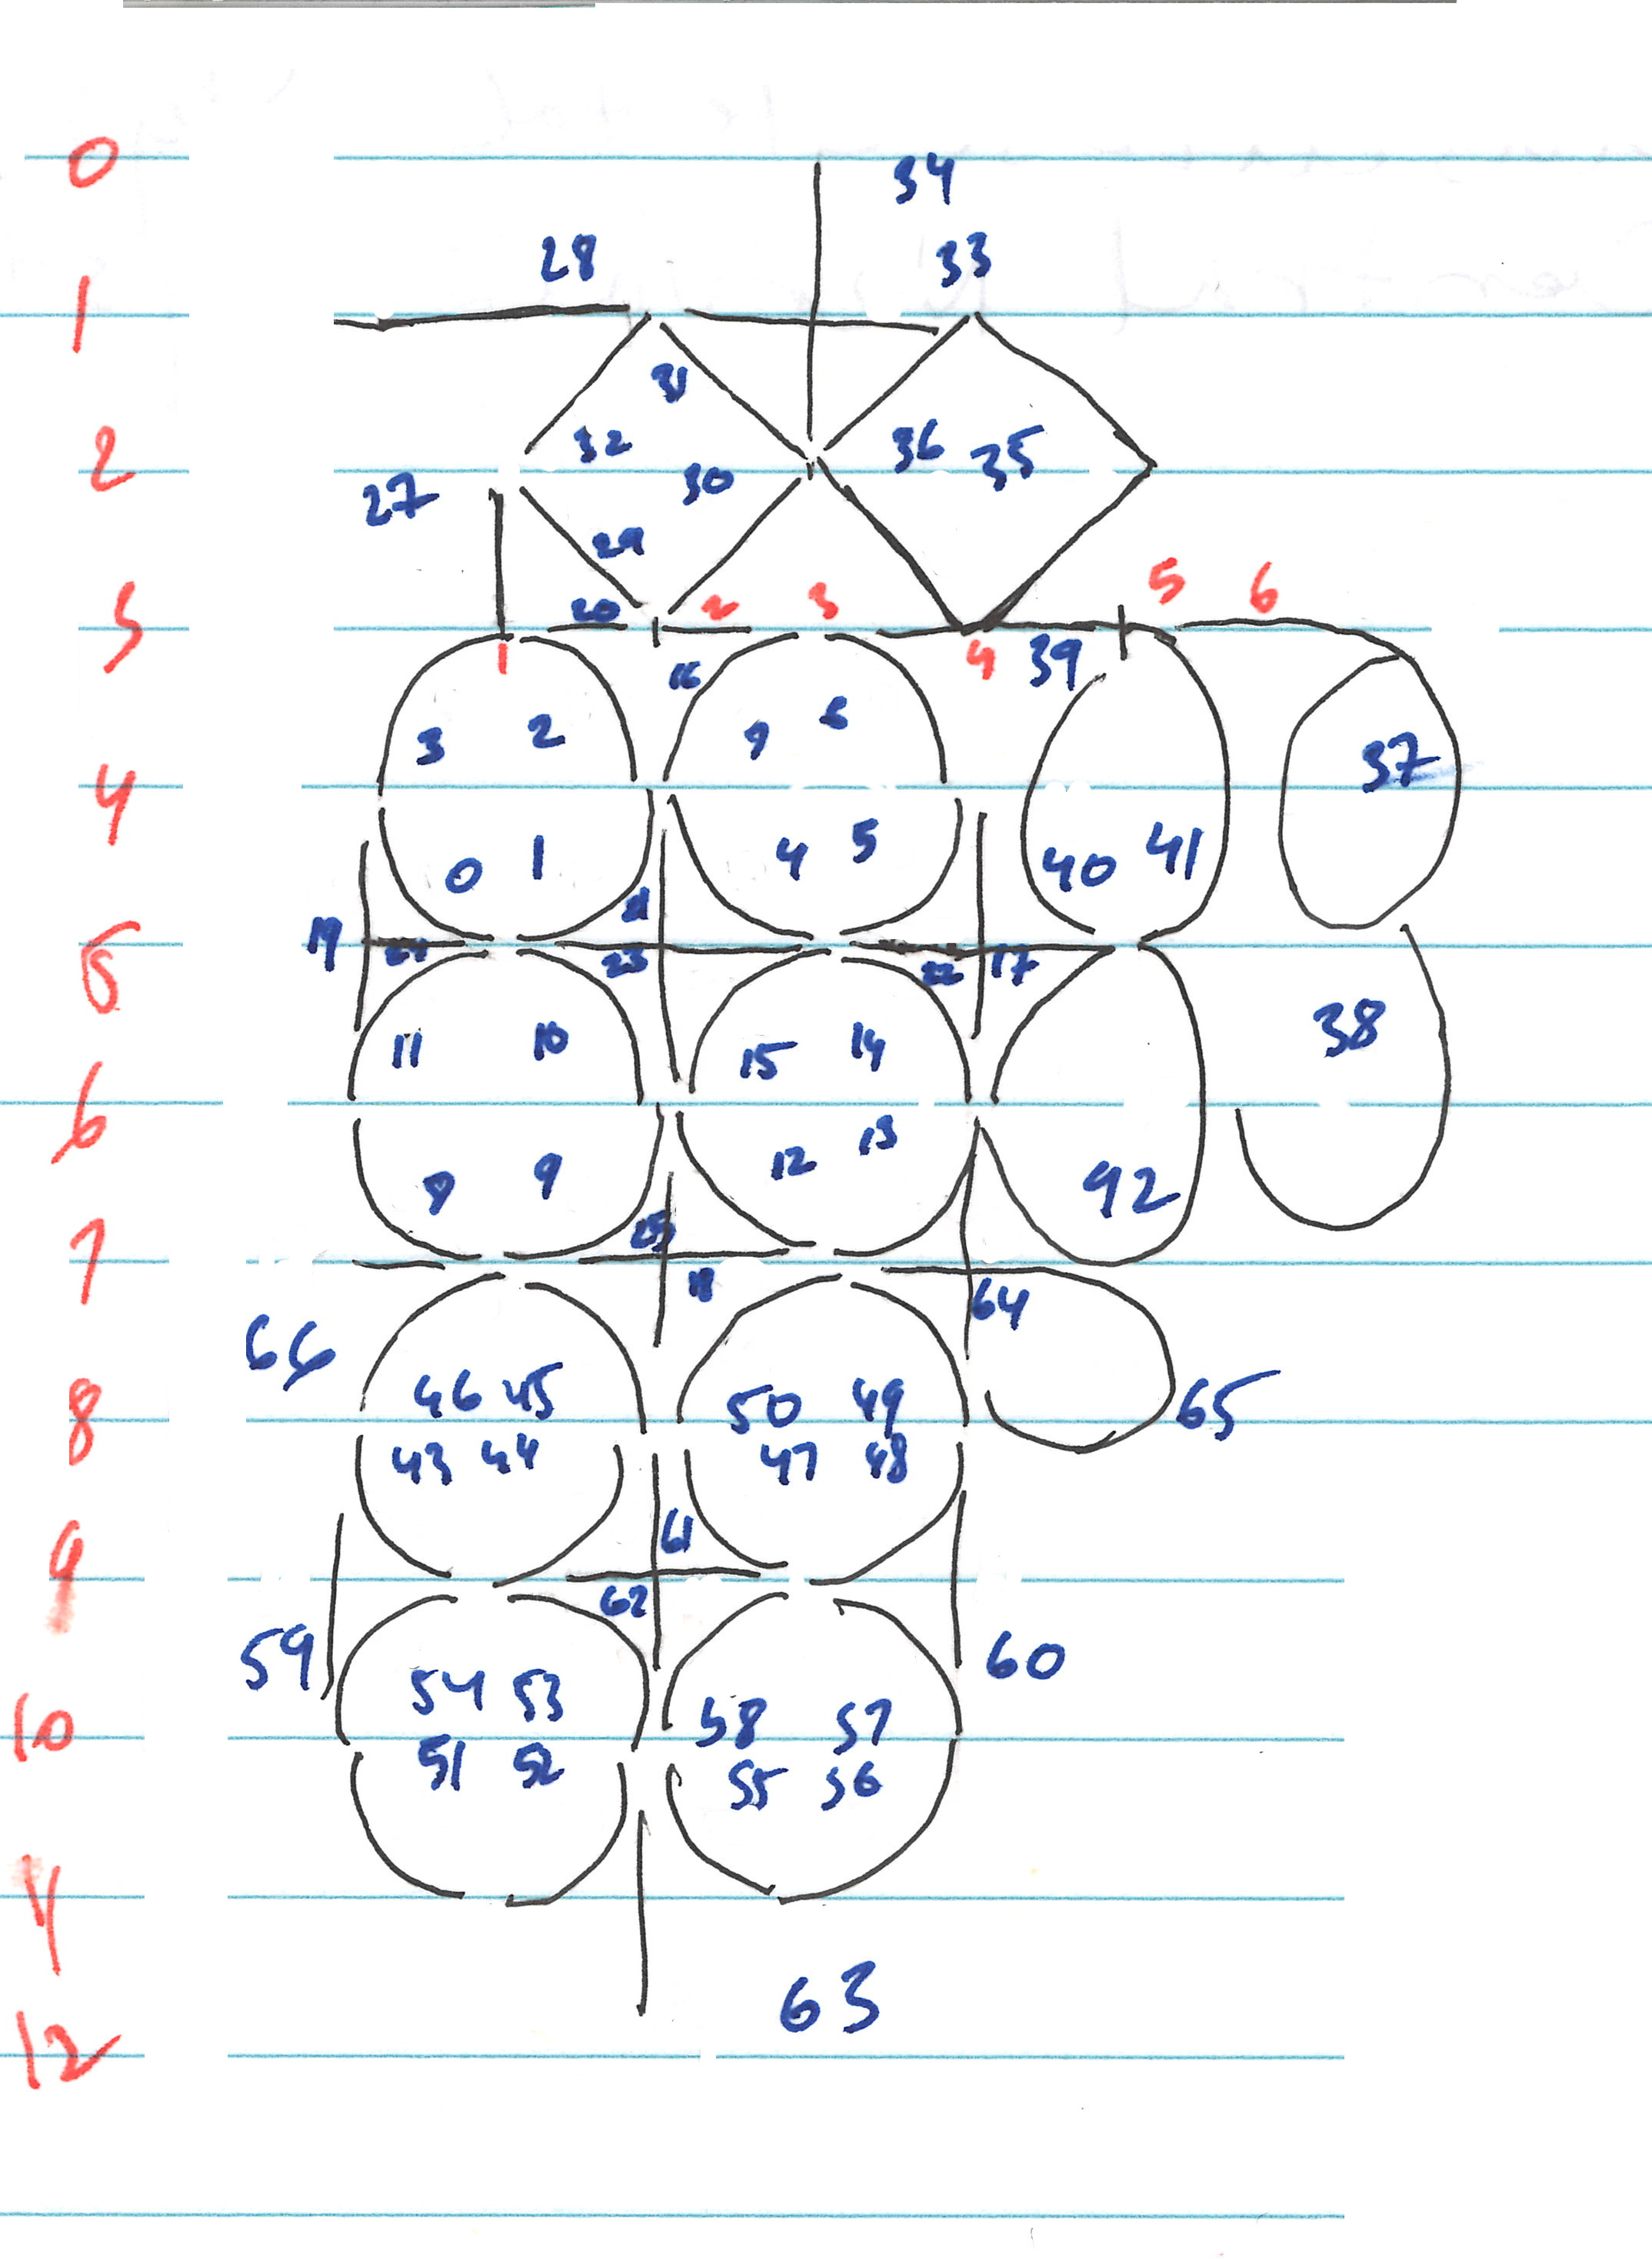 0 34
28 33
1
31
2 32 36 35
27 30
29
3 20 2 3 5 6
1 16 4 39
3 2 7 6 37
4
0 1 4 5 40 41
21
19 24 23 22 17
5
11 10 15 14 38
6
8 9 12 13 42
7 25
18 64
66
8 46 45 50 49 65
43 44 47 48
9 61
62
59 60
54 53
10 58 57
51 52 55 56
11
63
12